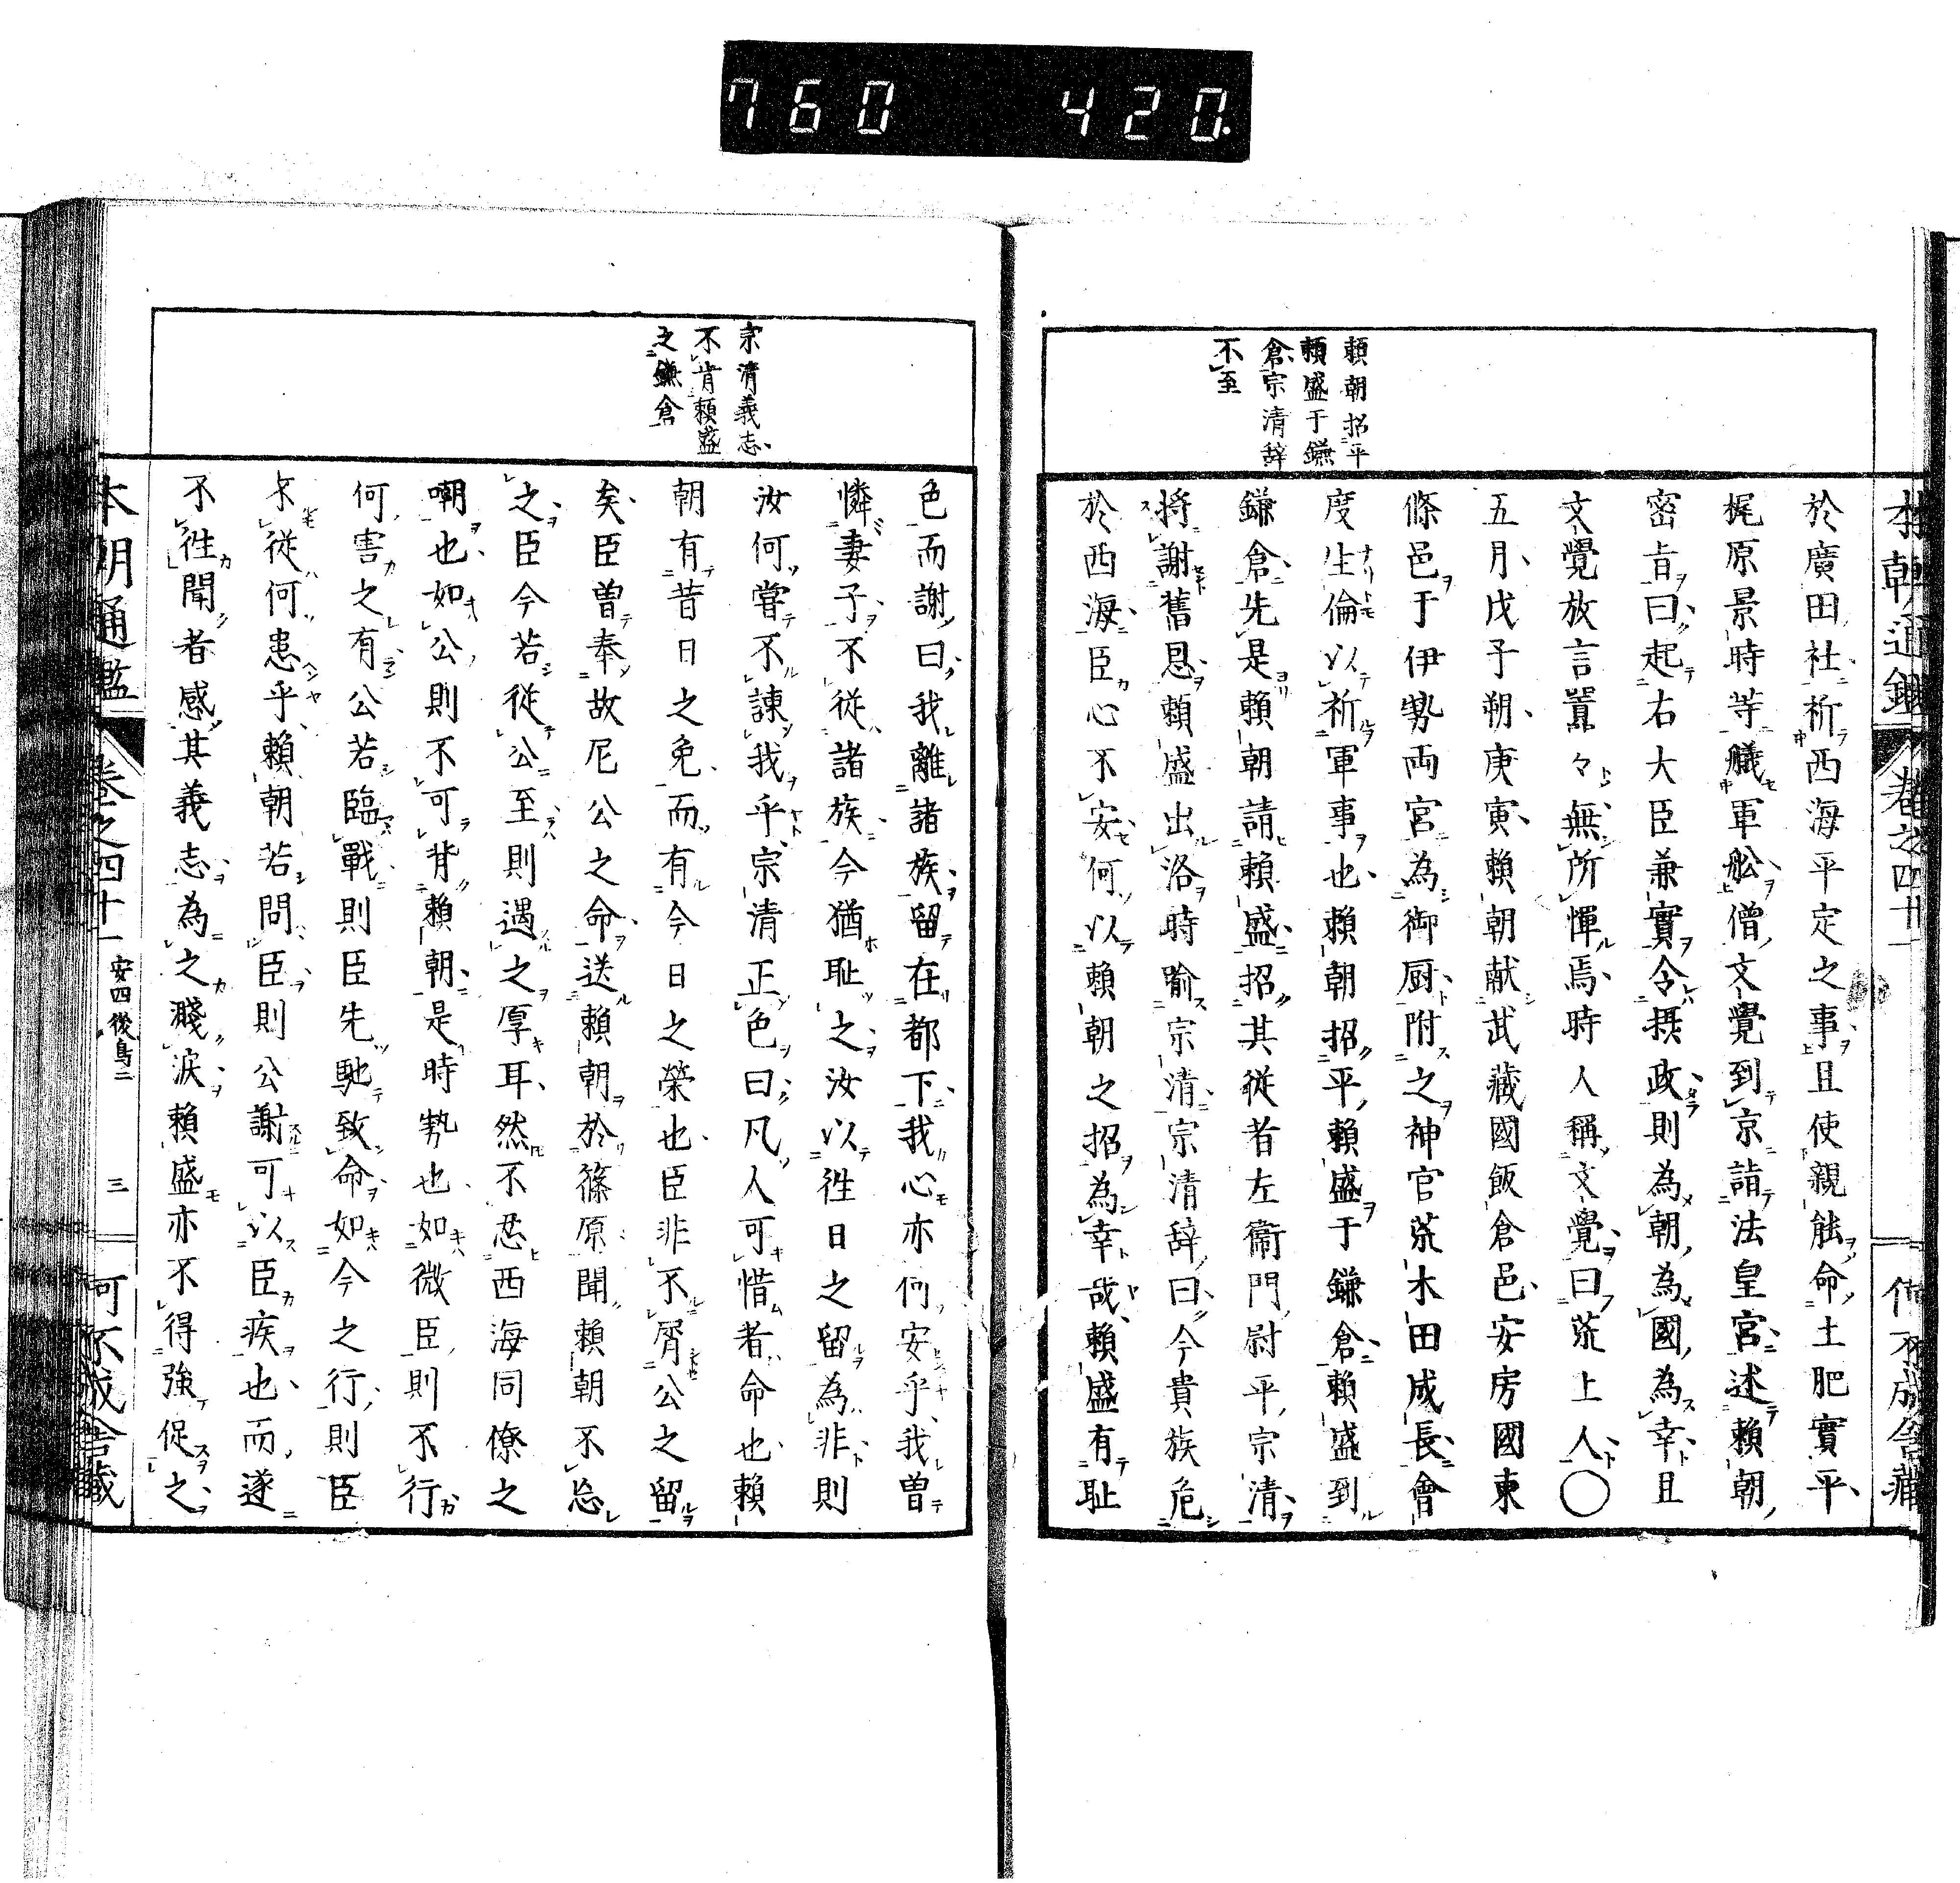 760 420.
本朝通鑑 卷之四十一
賴朝招平
賴盛于鎌
倉宗清辞
不至
於廣田社祈西海平定之事且使親能命土肥實平
梶原景時等艤軍舩僧文覺到京請法皇宮述賴朝
密旨曰起右大臣兼實令摂政則為朝為國為幸且
文覺放言囂々無所憚焉時人稱文覺曰荒上人〇
五月戊子朔庚寅賴朝献武藏國飯倉邑安房國東
條邑于伊勢両宮為御厨附之神官荒木田成長會
度生倫以祈軍事也賴朝招平賴盛于鎌倉賴盛到
鎌倉先是賴朝請賴盛招其従者左衞門尉平宗清
将謝舊恩賴盛出洛時喻宗清宗清辞曰今貴族危
於西海臣心不安何以賴朝之招為幸哉賴盛有耻
宗清義志
不肯賴盛
之鎌倉
色而謝曰我離諸族留在都下我心亦何安乎我曽
憐妻子不従諸族今猶耻之汝以徃日之留為非則
汝何嘗不諌我乎宗清正色曰凡人可惜者命也賴
朝有昔日之免而有今日之榮也臣非不屑公之留
矣臣曽奉故尼公之命送賴朝於篠原聞賴朝不忘
之臣今若從公至則遇之厚耳然不忍西海同僚之
嘲也如公則不可背賴朝是時勢也如微臣則不行
何害之有公若臨戰則臣先馳致命如今之行則臣
不従何患乎賴朝若問臣則公謝可以臣疾也而遂
不徃聞者感其義志為之濺涙賴盛亦不得強促之
本朝通鑑 卷之四十一 安四後鳥二 三 何不成舎藏